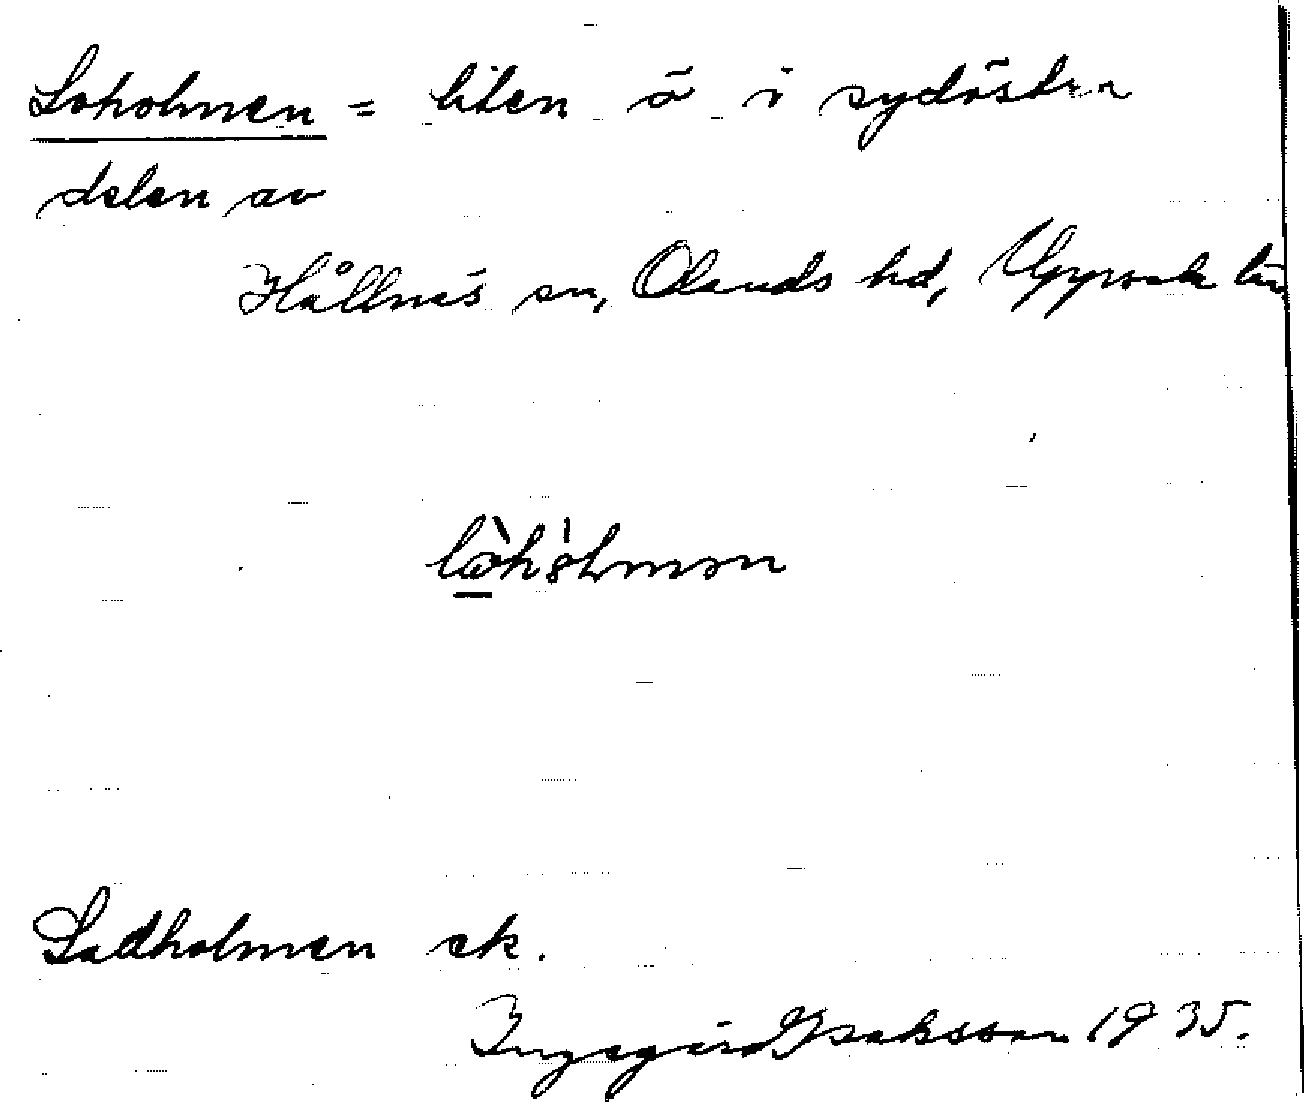 Loholmen = liten ö i sydöstra
delen av
Hållnäs sn, Olands hd, Uppsala län
Ladholmen ek.
Ingegerd Isaksson 1935.